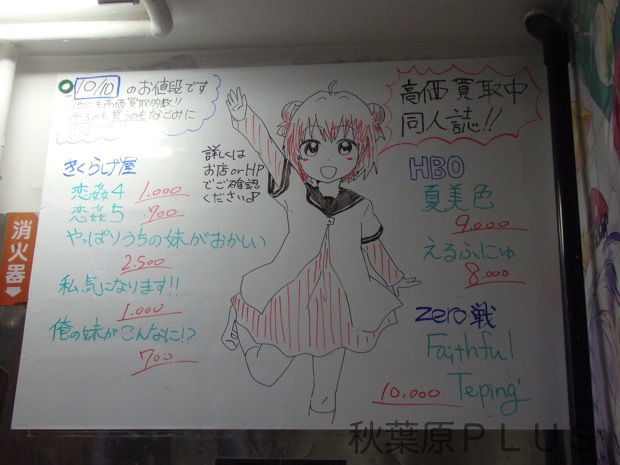 10/10 のお値段です
他にも高価買取多数!!
売るのも買うのもなごみに
きくらげ屋
恋姦4 1.000
恋姦5 700
やっぱりうちの妹がおかしい
2.500
私、気になります!!
1.000
俺の妹がこんなに!?
700
詳しくは
お店 or HP
でご確認
ください♪
高価買取中
同人誌!!
HBO
夏美色
9.000
えるふにゅ
8.000
Zero戦
Faithful
Teping
10.000
消火器
秋葉原PLUS